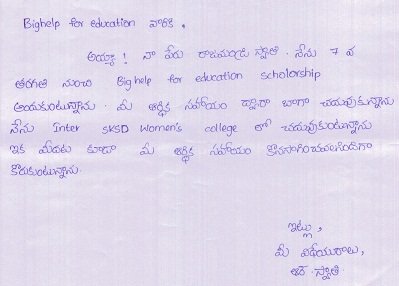 Bighelp for education వారికి.
అయ్యా! నా పేరు రాజమండ్రి స్వాతి. నేను 7 వ
తరగతి నుంచి Bighelp for education scholorship
అందుకుంటున్నాను. మీ ఆర్థిక సహాయం ద్వారా బాగా చదువుకున్నాను
నేను Inter SKSD Women's college లో చదువుకుంటున్నాను
ఇక మీదట కూడా మీ ఆర్థిక సహాయం కొనసాగించవలసిందిగా
కోరుకుంటున్నాను.
ఇట్లు,
మీ విధేయురాలు,
ఆర్. స్వాతి